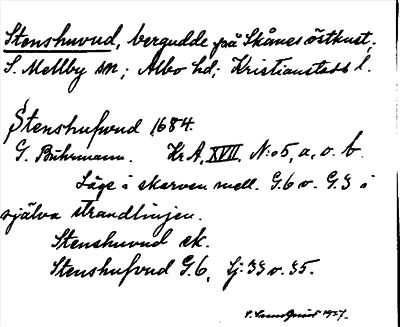 Stenshuvud, bergudde på Skånes östkust,
S. Mellby sn; Albo hd; Kristianstads l.
Stenshufwud 1684.
G. Buhrmann. Kr.A, XVII, N:o 5, a, o. b.
Läge i skarven mell. G.6 o. G.3 i
själva strandlinjen.
Stenshuvud ek.
Stenshufvud G.6, Sj: 33 o. 35.
1927.